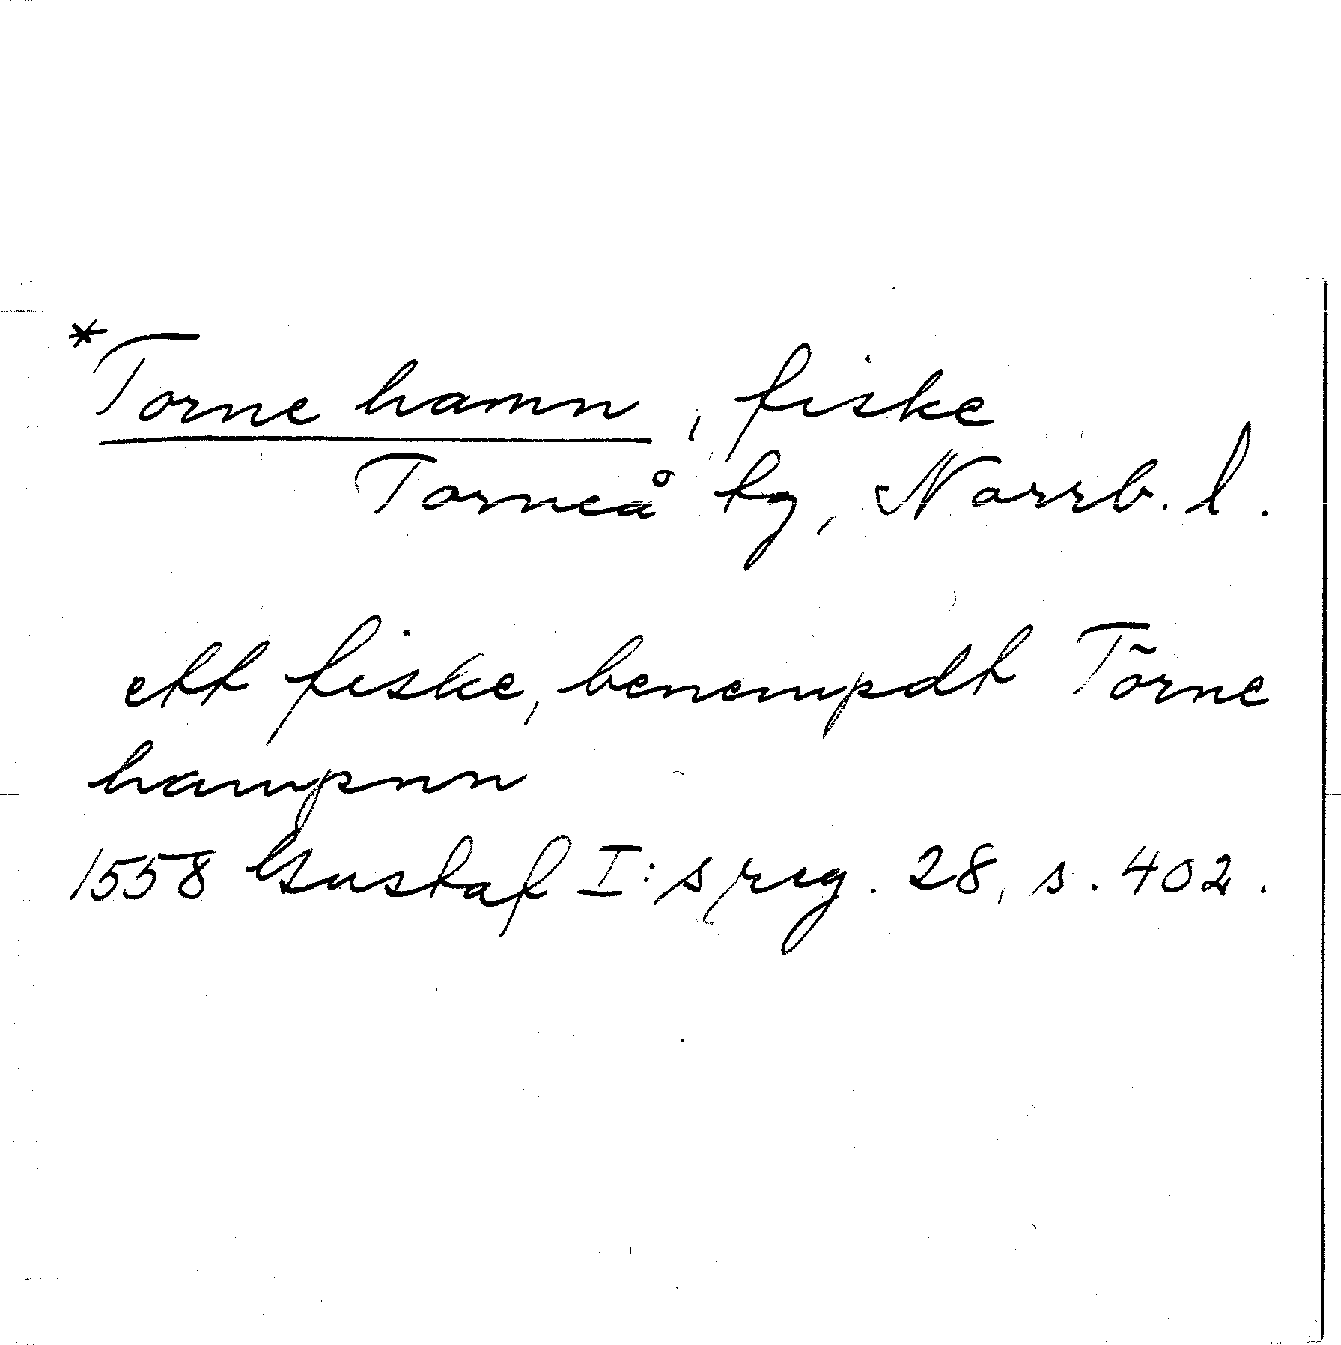 *Torne hamn, fiske
Torneå tg, Norrb. l.
ett fiske, benempdt Tõrne
hampnn
1558 Gustaf I:s reg. 28, s. 402.